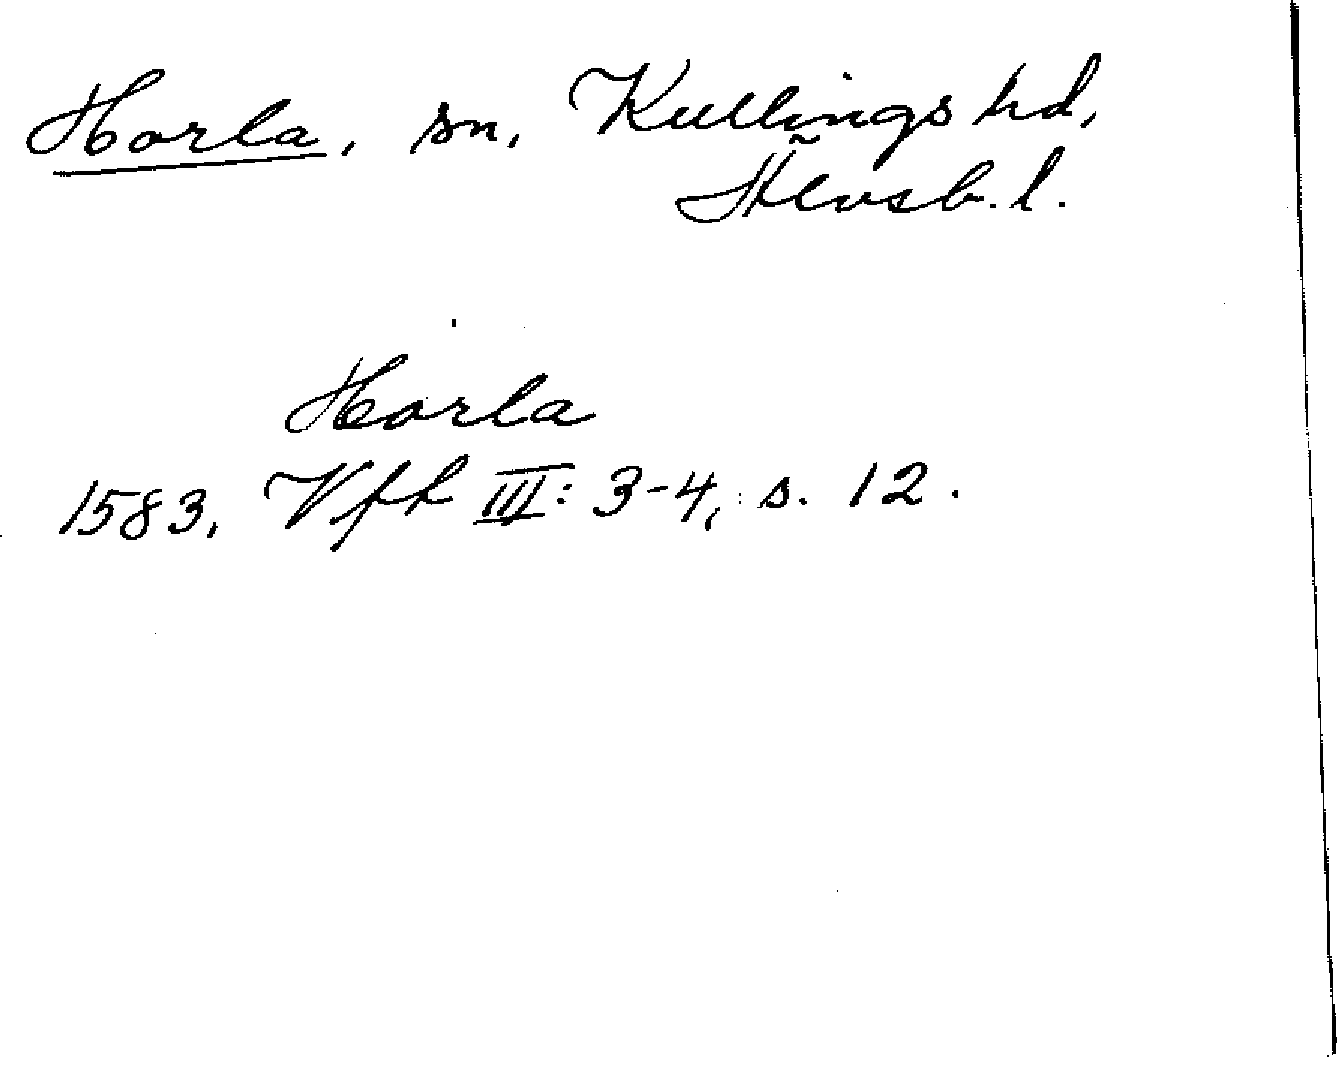 Horla, sn, Kullings hd,
Älvsb. l.
Horla
1583, Vfh III: 3-4, s. 12.